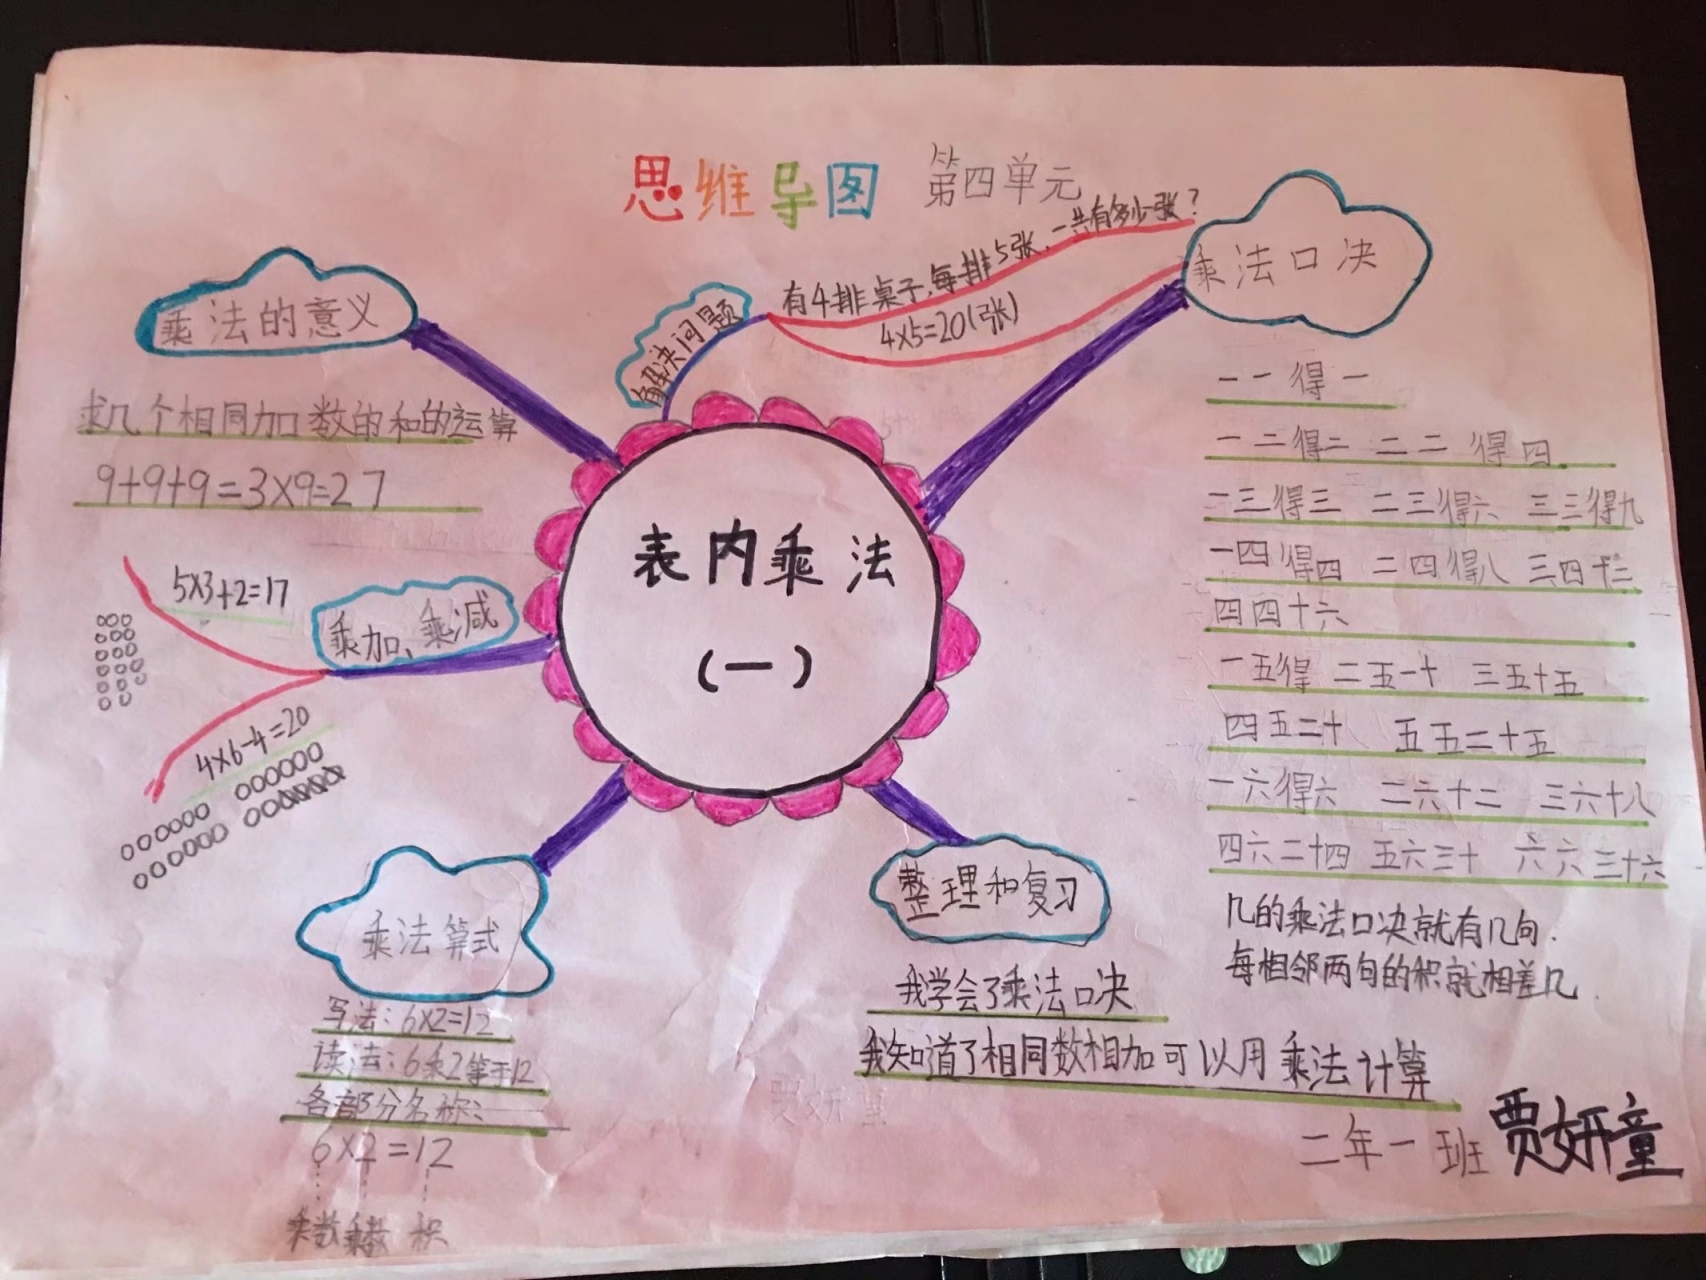 思维导图 第四单元
乘法的意义
求几个相同加数的和的运算
9+9+9=3×9=27
解决问题
有4排桌子,每排5张,一共有多少张?
4×5=20(张)
乘法口决
一一得一
一二得二 二二得四
一三得三 二三得六 三三得九
一四得四 二四得八 三四十二
四四十六
一五得 二五一十 三五十五
四五二十 五五二十五
一六得六 二六十二 三六十八
四六二十四 五六三十 六六三十六
几的乘法口决就有几向.
每相邻两句的积就相差几.
表内乘法
(一)
乘加、乘减
5×3+2=17
4×6-4=20
乘法算式
写法:6×2=12
读法:6乘2等于12
各部分名称:
6×2=12
乘数 乘数 积
整理和复习
我学会了乘法口决
我知道了相同数相加可以用乘法计算
二年一班 贾妍童
贾妍童